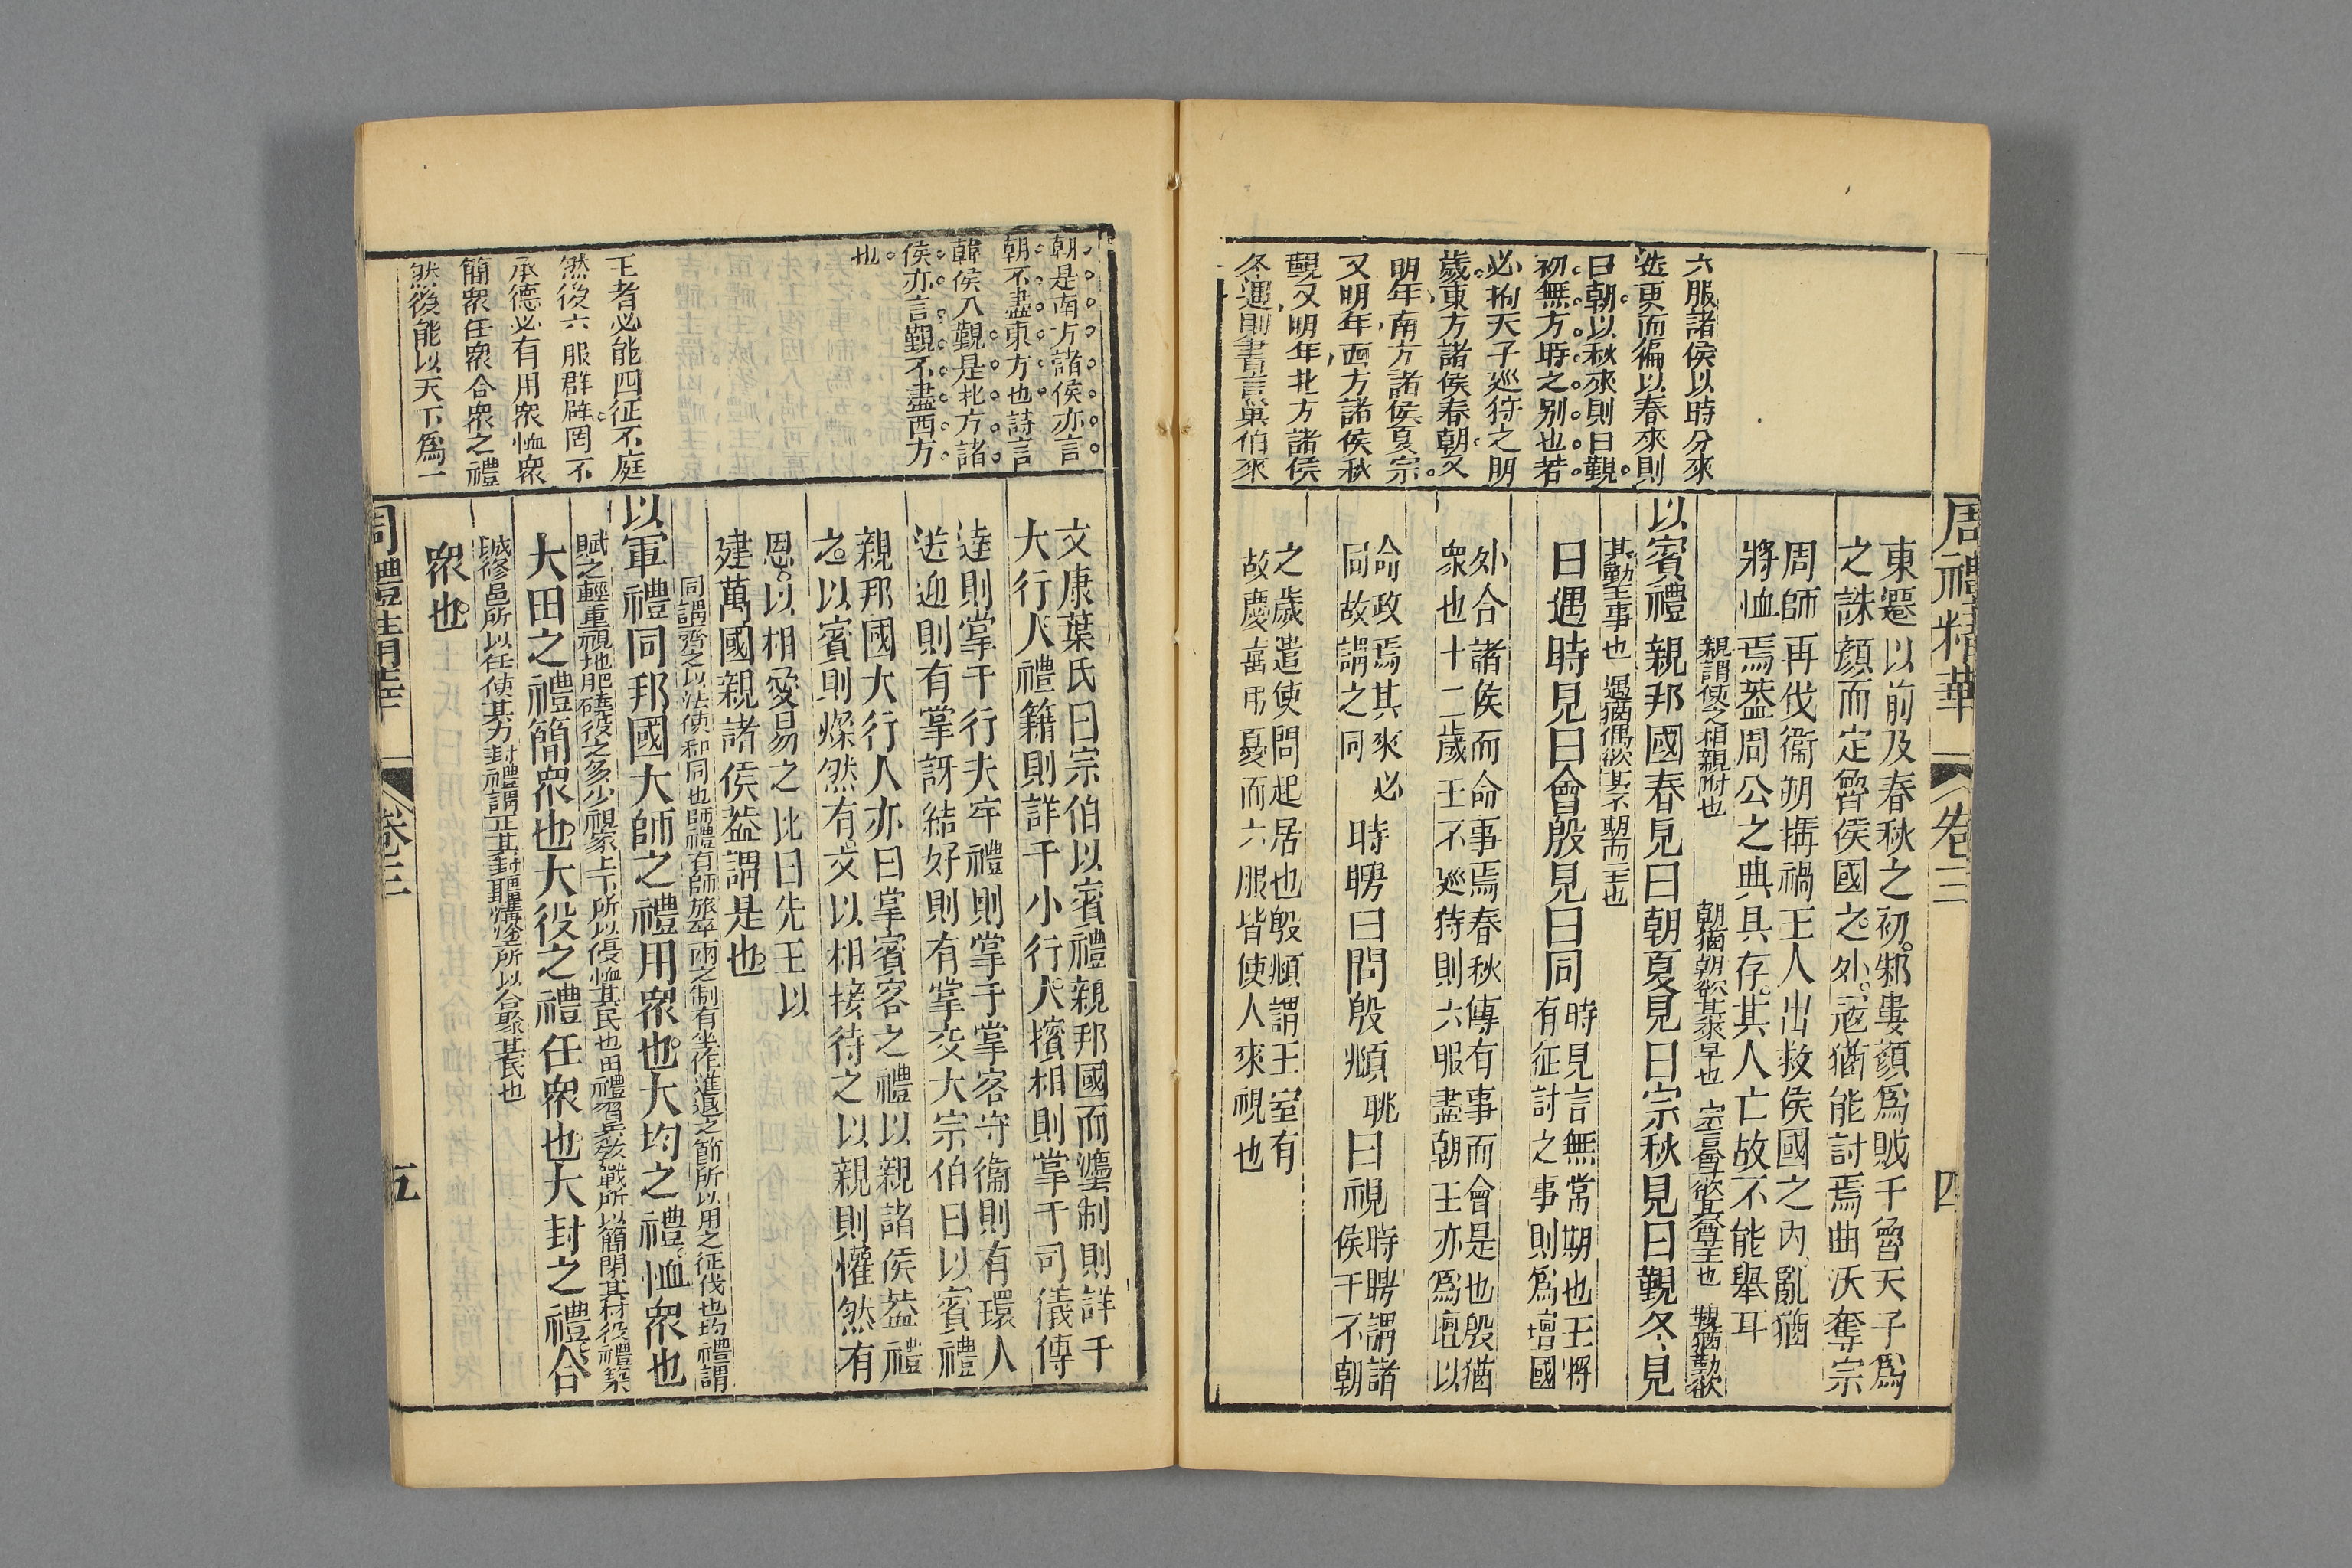 周禮精華
卷三
四
六服諸侯以時分來
迭更而徧以春來則
曰朝以秋來則曰覲
初無方時之别也若
必拘天子巡狩之明
歲東方諸侯春朝又
明年南方諸侯夏宗
又明年西方諸侯秋
覲又明年北方諸侯
冬遇則書言巢伯來
東遷以前及春秋之初邾婁顔爲賊于魯天子爲
之誅顔而定魯侯國之外冦猶能討焉曲沃奪宗
周師再伐衞朔搆禍王人出救侯國之内亂猶
將恤焉葢周公之典具存其人亡故不能舉耳
親謂使之相親附也
朝猶朝欲其來早也
宗尊也欲其尊王也
覲猶勤欲
以賓禮親邦國春見曰朝夏見曰宗秋見曰覲冬見
其勤王事也
遇猶偶欲其不期而至也
曰遇時見曰會殷見曰同
時見言無常期也王將
有征討之事則爲壇國
外合諸侯而命事焉春秋傳有事而會是也殷猶
衆也十二歲王不巡狩則六服盡朝王亦爲壇以
命政焉其來必
同故謂之同
時聘曰問殷覜曰視
時聘謂諸
侯于不朝
之歲遣使問起居也殷覜謂王室有
故慶喜弔憂而六服皆使人來視也
朝是南方諸侯亦言
朝不盡東方也詩言
韓侯入覲是北方諸
侯亦言覲不盡西方
也
王者必能四征不庭
然後六服群辟罔不
承德必有用衆恤衆
簡衆任衆合衆之禮
然後能以天下爲一
文康葉氏曰宗伯以賓禮親邦國而鑾制則詳于
大行人禮籍則詳于小行人擯相則掌于司儀傳
逹則掌于行夫牢禮則掌于掌客守衞則有環人
送迎則有掌訝結好則有掌交大宗伯曰以賓禮
親邦國大行人亦曰掌賓客之禮以親諸侯葢禮
之以賓則燦然有文以相接待之以親則懽然有
恩以相愛易之比曰先王以
建萬國親諸侯葢謂是也
同謂齊之以法使和同也師禮有師旅卒兩之制有坐作進退之節所以用之征伐也均禮謂
以軍禮同邦國大師之禮用衆也大均之禮恤衆也
賦之輕重視地肥磽役之多少視家上下所以優恤其民也田禮習兵敎戰所以簡閱其材役禮築
大田之禮簡衆也大役之禮任衆也大封之禮合
城修邑所以任使其力封禮謂正其封疆溝塗所以合聚其民也
衆也
周禮精華
卷三
五